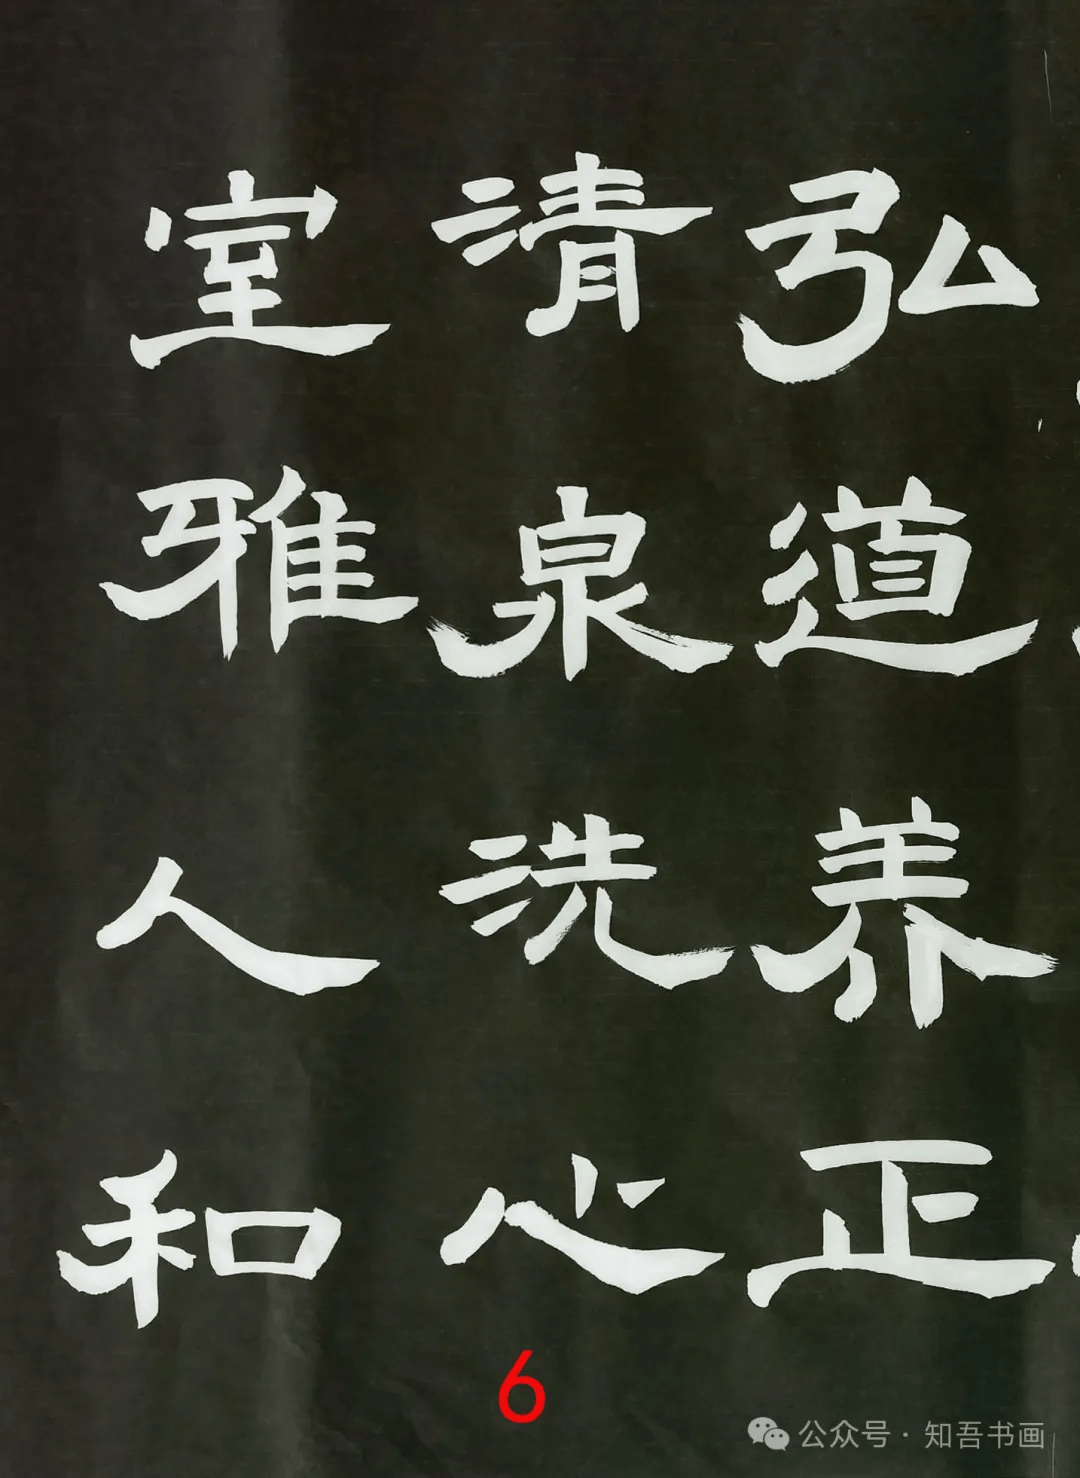 弘道养正
清泉洗心
室雅人和
6
公众号·知吾书画